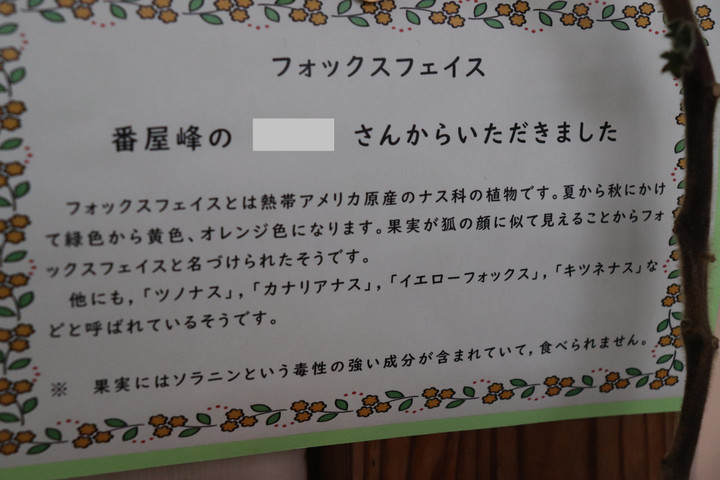 フォックスフェイス
番屋峰の さんからいただきました
フォックスフェイスとは熱帯アメリカ原産のナス科の植物です。夏から秋にかけ
て緑色から黄色、オレンジ色になります。果実が狐の顔に似て見えることからフォ
ックスフェイスと名づけられたそうです。
他にも,「ツノナス」,「カナリアナス」,「イエローフォックス」,「キツネナス」な
どと呼ばれているそうです。
※ 果実にはソラニンという毒性の強い成分が含まれていて,食べられません。